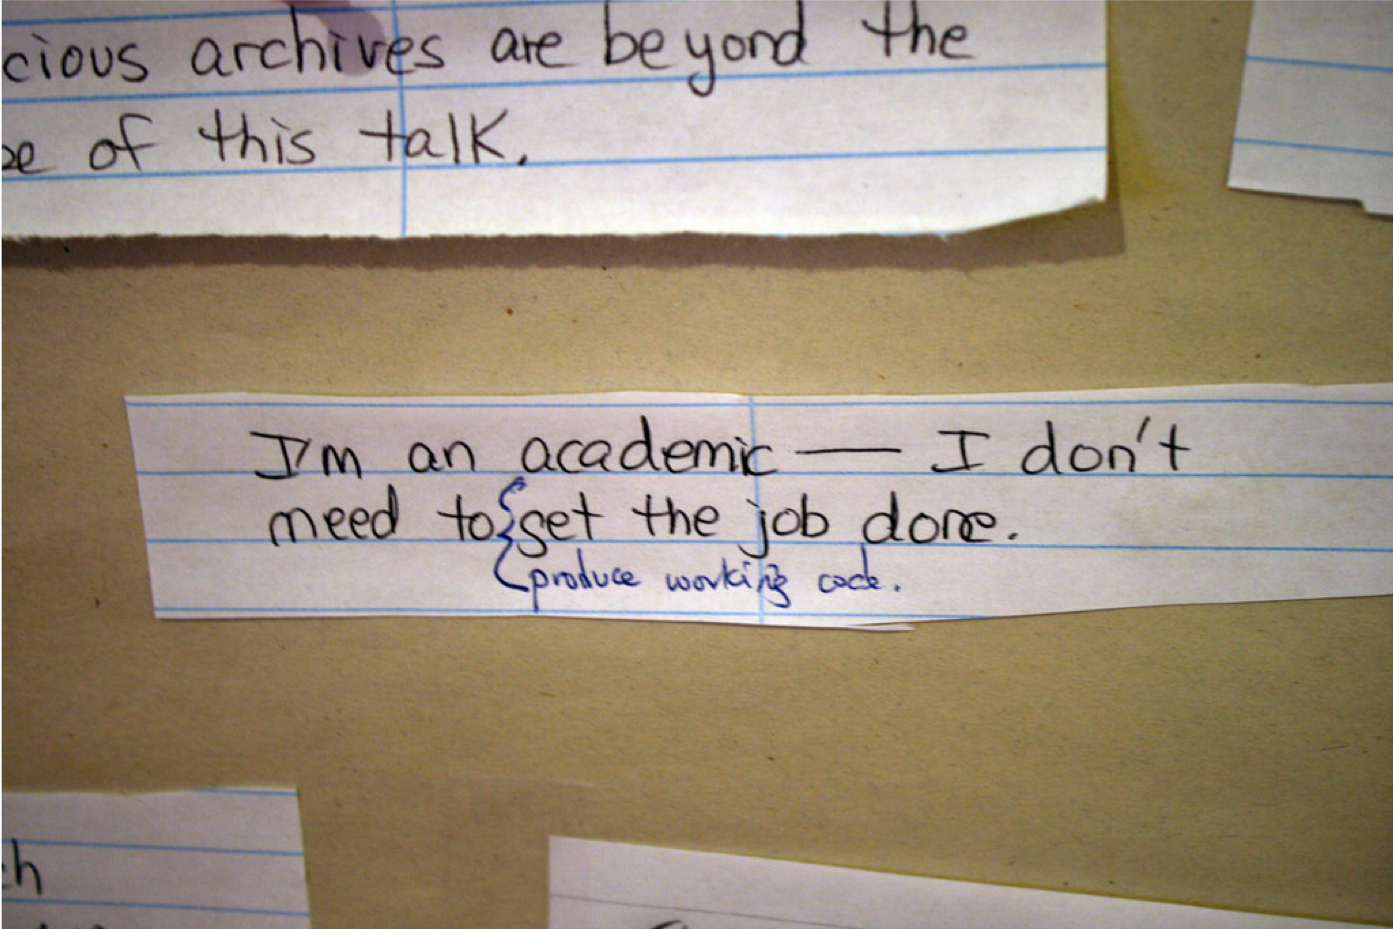 cious archives are beyond the
pe of this talk.
I'm an academic — I don't
need to { get the job done.
produce working code.
h